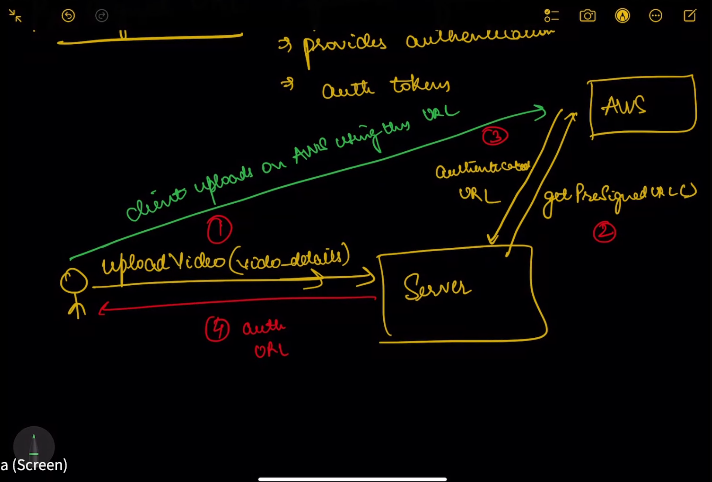 ⇒ provides
⇒ auth tokens
AWS
client uploads on AWS using this URL
3
authenticated
URL
getPreSignedURL()
2
1
uploadVideo(video_details)
Server
4 auth
URL
a (Screen)